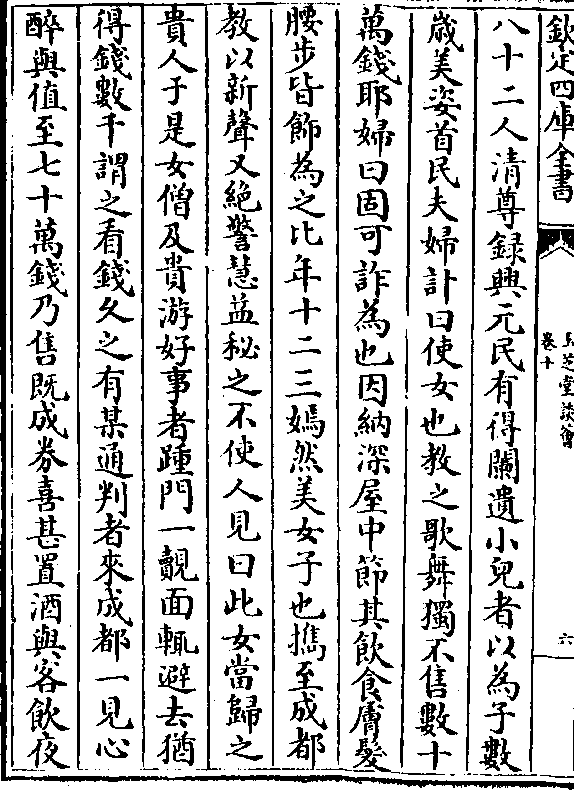 欽定四庫全書
玉芝堂談薈
卷十
六
八十二人清尊録興元民有得闌遺小兒者以為子數
歳美姿首民夫婦計曰使女也教之歌舞獨不售數十
萬錢耶婦曰固可詐為也因納深屋中節其飲食膚髮
腰步皆飾為之比年十二三嫣然美女子也攜至成都
教以新聲又絶警慧益秘之不使人見曰此女當歸之
貴人于是女僧及貴游好事者踵門一覿面輒避去猶
得錢數千謂之看錢久之有某通判者來成都一見心
醉與值至七十萬錢乃售既成券喜甚置酒與客飲夜